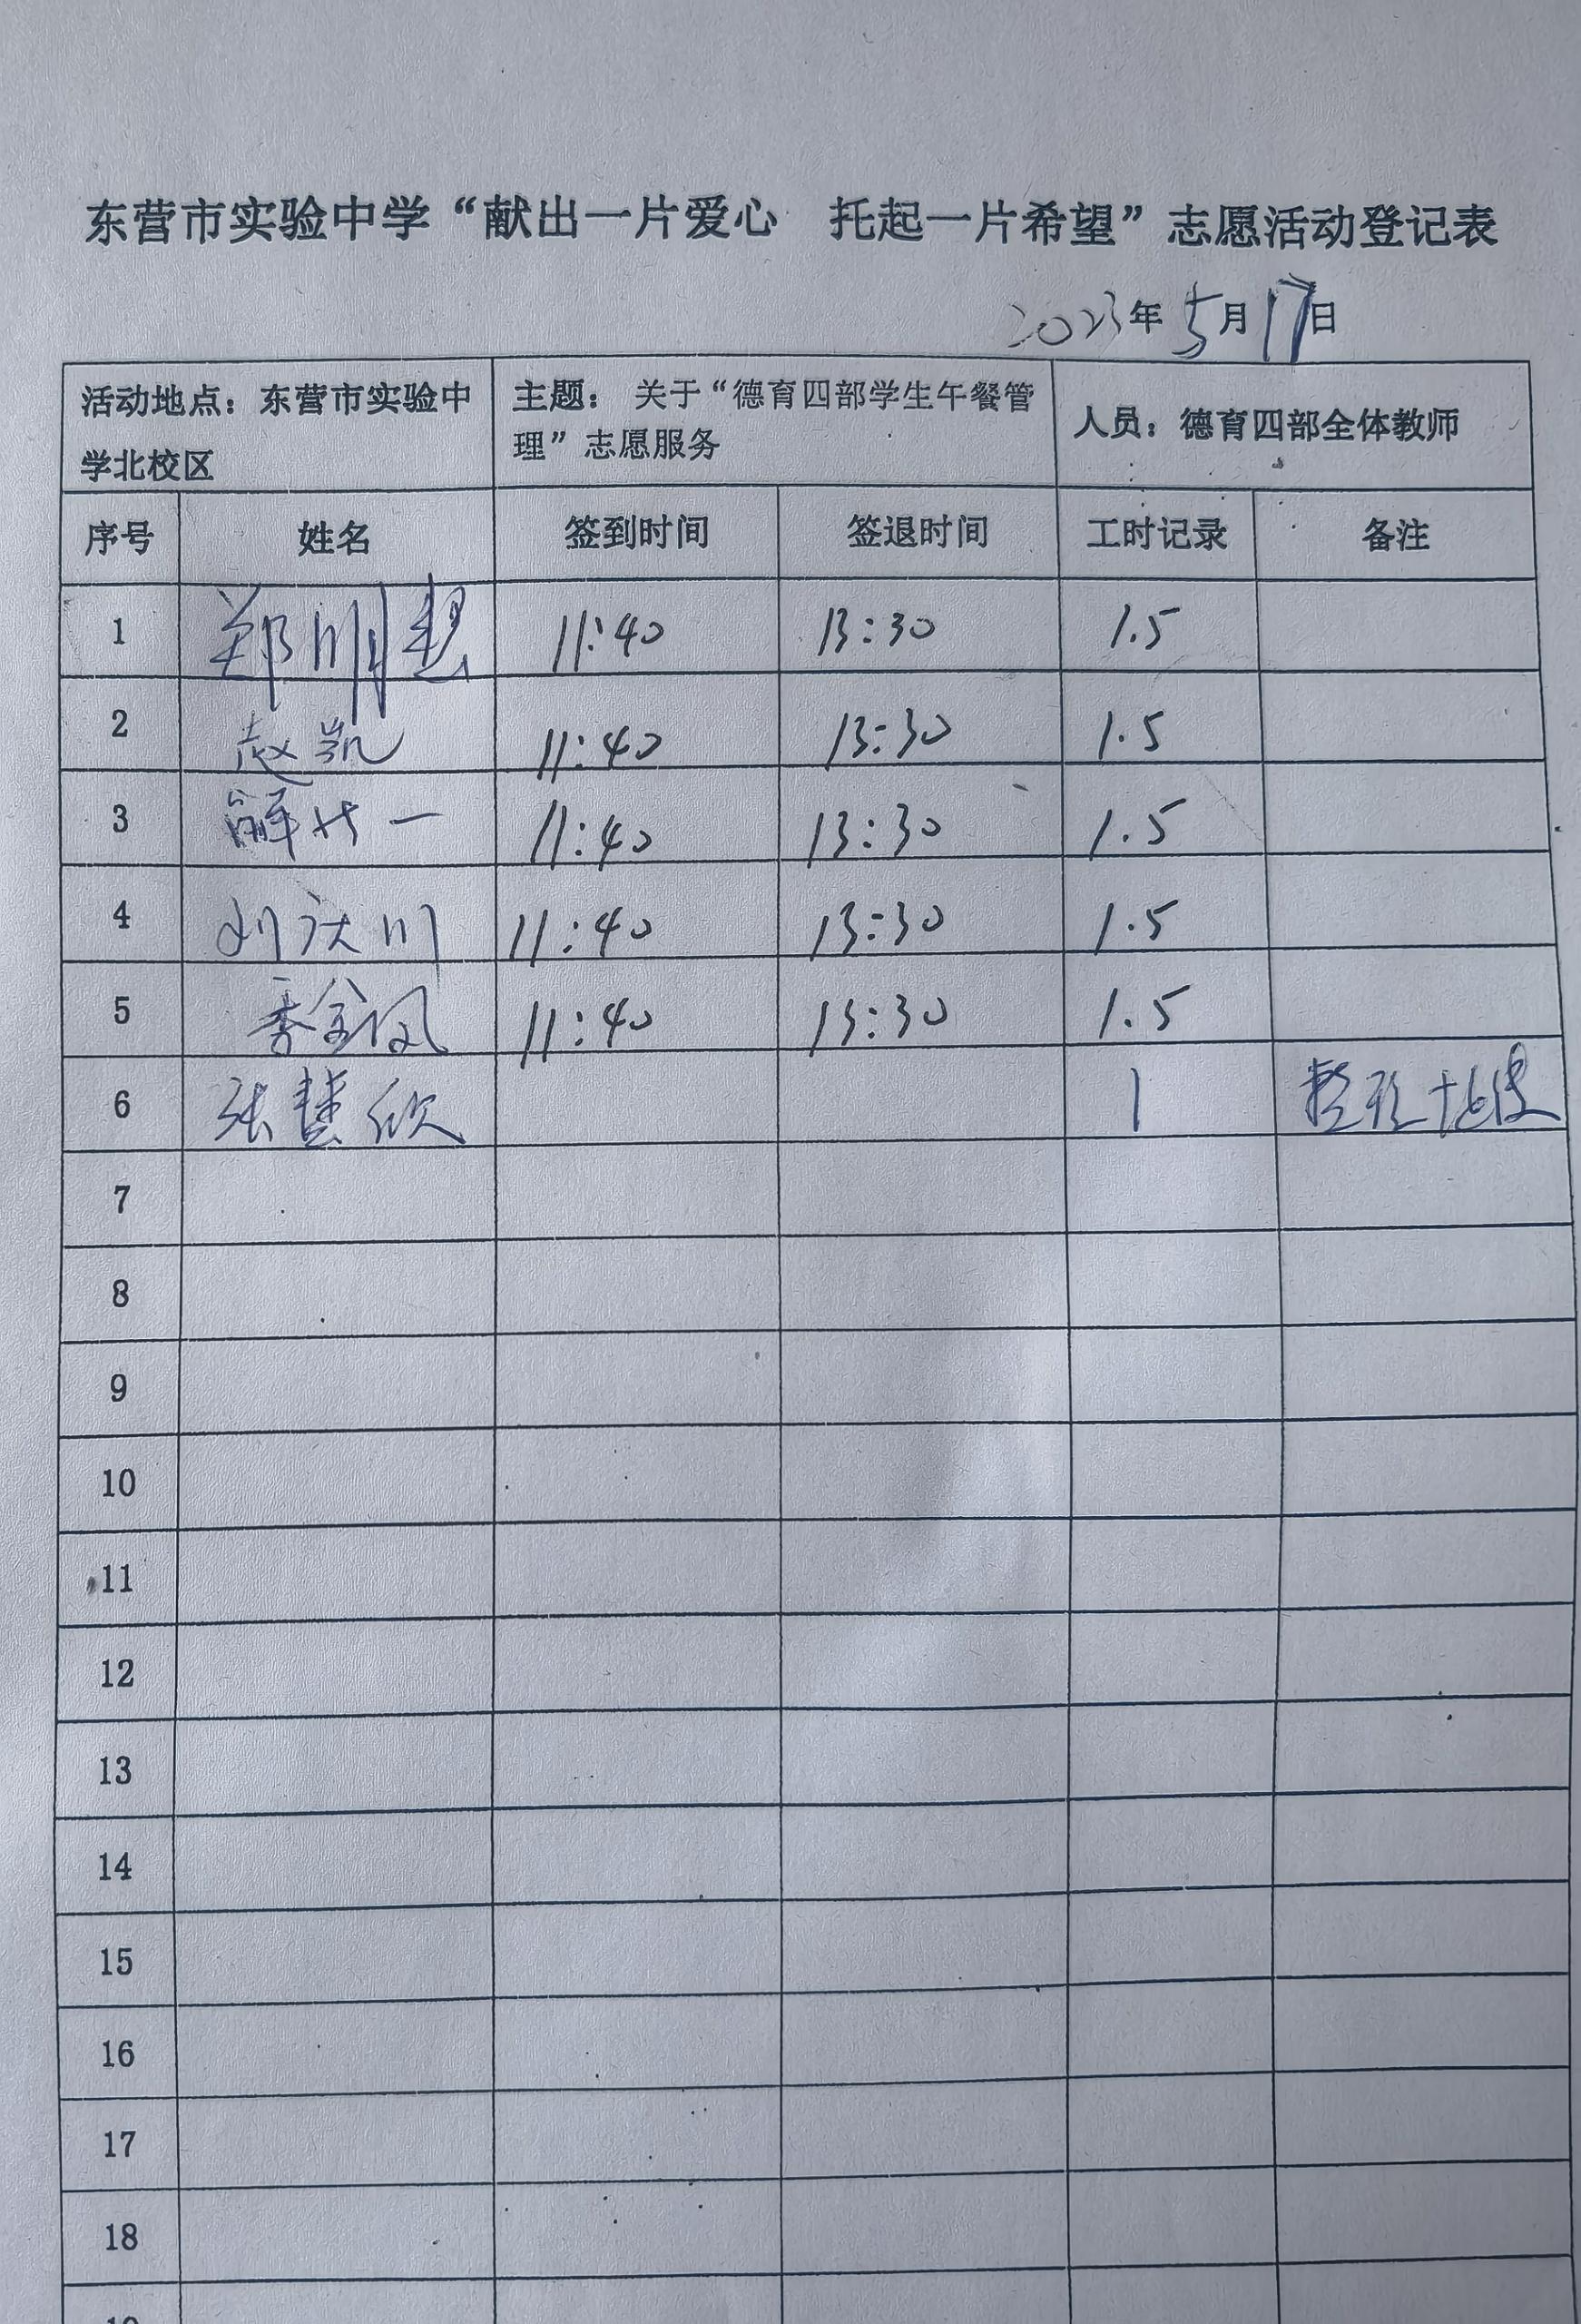 东营市实验中学“献出一片爱心 托起一片希望”志愿活动登记表
2023年5月17日
活动地点：东营市实验中
学北校区
主题： 关于“德育四部学生午餐管
理”志愿服务
人员：德育四部全体教师
序号 姓名 签到时间 签退时间 工时记录 备注
1 郑 11:40 13:30 1.5
2 赵凯 11:40 13:30 1.5
3 解 一 11:40 13:30 1.5
4 刘 川 11:40 13:30 1.5
5 季金凤 11:40 13:30 1.5
6 张慧欣 1
7
8
9
10
11
12
13
14
15
16
17
18